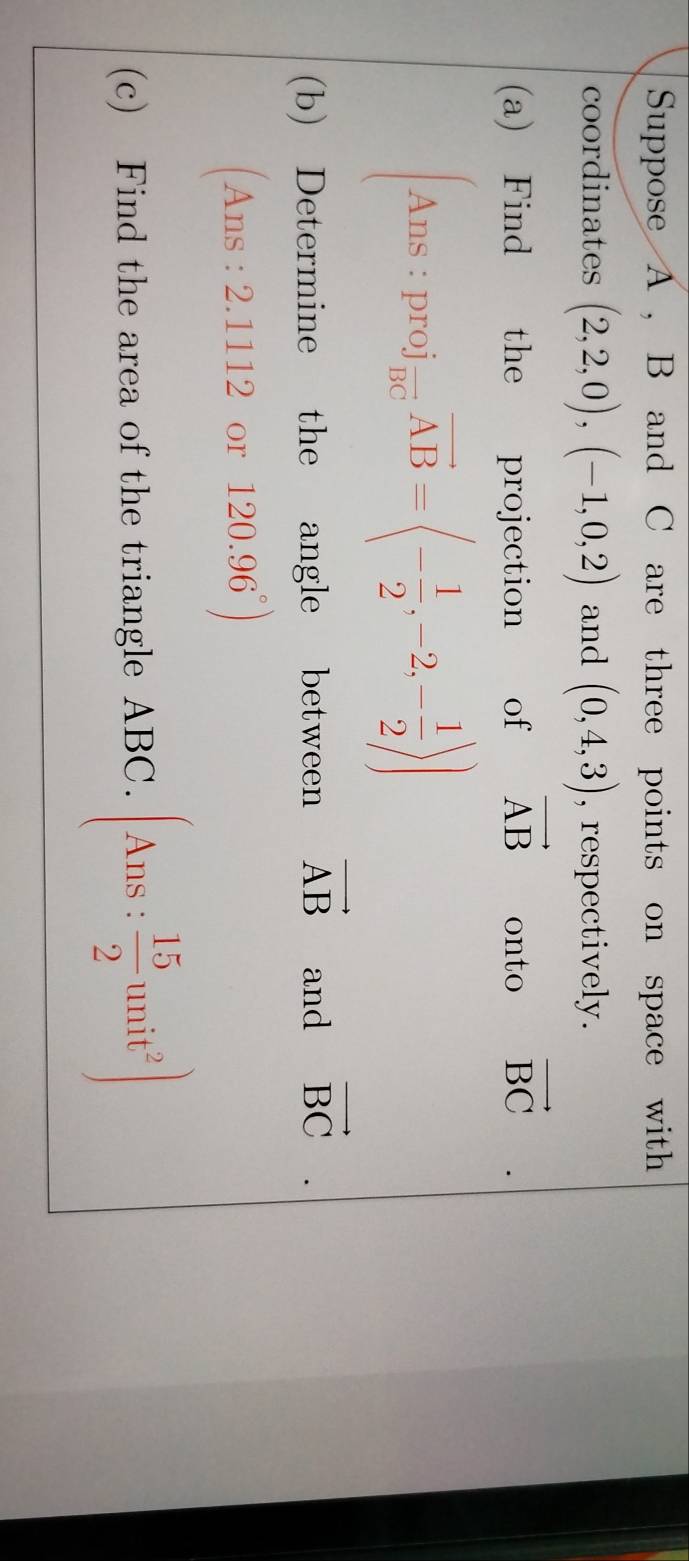 Suppose A , B and C are three points on space with
coordinates (2,2,0), (−1,0,2) and (0,4,3), respectively.
(a) Find the projection of \overrightarrow{AB} onto \overrightarrow{BC} .
(Ans : proj_{\overrightarrow{BC}} \overrightarrow{AB} = ⟨−\frac{1}{2}, −2, −\frac{1}{2}⟩)
(b) Determine the angle between \overrightarrow{AB} and \overrightarrow{BC} .
(Ans : 2.1112 or 120.96°)
(c) Find the area of the triangle ABC. (Ans : \frac{15}{2} unit²)